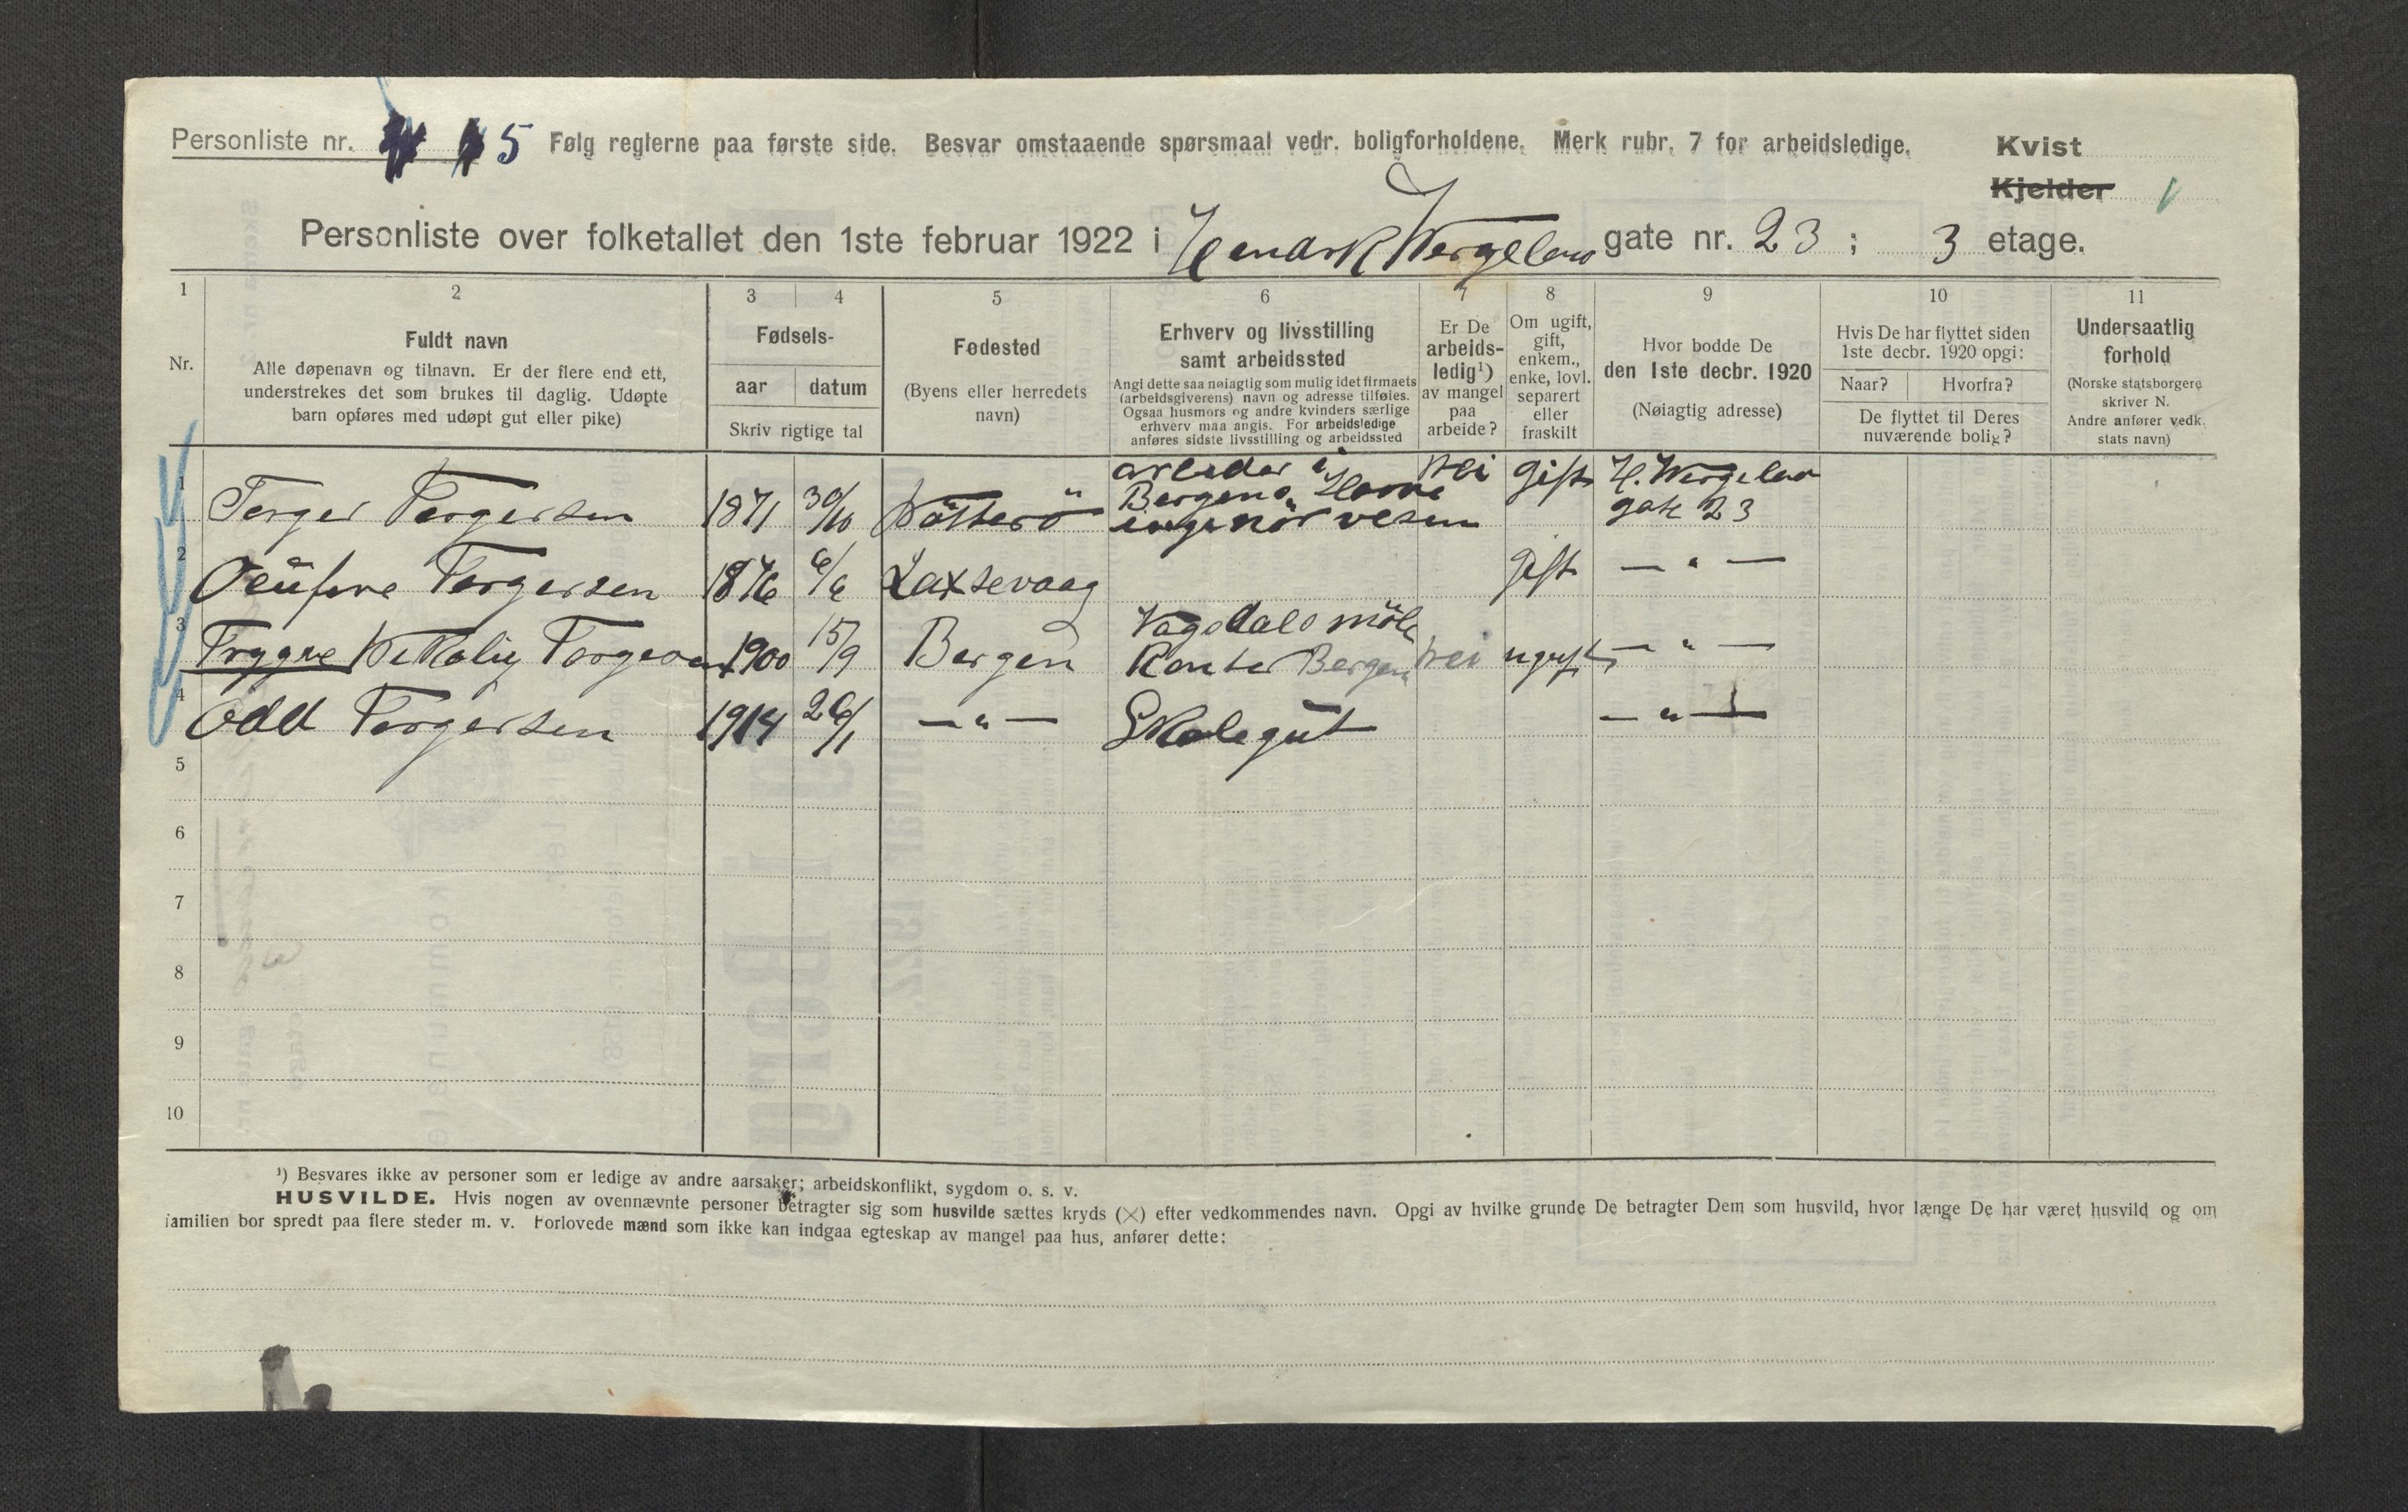 Personliste nr. 5 Følg reglerne paa første side. Besvar omstaaende spørsmaal vedr. boligforholdene. Merk rubr. 7 for arbeidsledige.
Kvist
Kjelder
Personliste over folketallet den 1ste februar 1922 i Hendrik Wergelens gate nr. 23 ; 3 etage.
1 2 3 4 5 6 7 8 9 10 11
Nr.
Fuldt navn
Alle døpenavn og tilnavn. Er der flere end ett,
understrekes det som brukes til daglig. Udøpte
barn opføres med udøpt gut eller pike)
Fødsels-
aar datum
Skriv rigtige tal
Fødested
(Byens eller herredets
navn)
Erhverv og livsstilling
samt arbeidssted
Angi dette saa nøiaglig som mulig idet firmaets
(arbeidsgiverens) navn og adresse tilføies.
Ogsaa husmors og andre kvinders særlige
erhverv maa angis. For arbeidsledige
anføres sidste livsstilling og arbeidssted
Er De
arbeids-
ledig¹)
av mangel
paa
arbeide?
Om ugift,
gift,
enkem.,
enke, lovl.
separert
eller
fraskilt
Hvor bodde De
den 1ste decbr. 1920
(Nøiagtig adresse)
Hvis De har flyttet siden
1ste decbr. 1920 opgi:
Naar? Hvorfra?
De flyttet til Deres
nuværende bolig?
Undersaatlig
forhold
(Norske statsborgere
skriver N.
Andre anfører vedk.
stats navn)
1 Torger Torgersen 1871 30/10 arbeider i Bergens Havne ingeniörvesen nei gift H. Wergelens gate 23
2 Torgersen 1876 6/6 Laxsevaag gift — " —
3 Trygve Torgersen 1900 15/9 Bergen Vagsdals mölle Kontor Bergen nei ugift — " —
4 Odd Torgersen 1914 26/1 — " — Skolegut — " —
5
6
7
8
9
10
¹) Besvares ikke av personer som er ledige av andre aarsaker; arbeidskonflikt, sygdom o. s. v.
HUSVILDE. Hvis nogen av ovennævnte personer betragter sig som husvilde sættes kryds (×) efter vedkommendes navn. Opgi av hvilke grunde De betragter Dem som husvild, hvor længe De har været husvild og om
familien bor spredt paa flere steder m. v. Forlovede mænd som ikke kan indgaa egteskap av mangel paa hus, anfører dette: